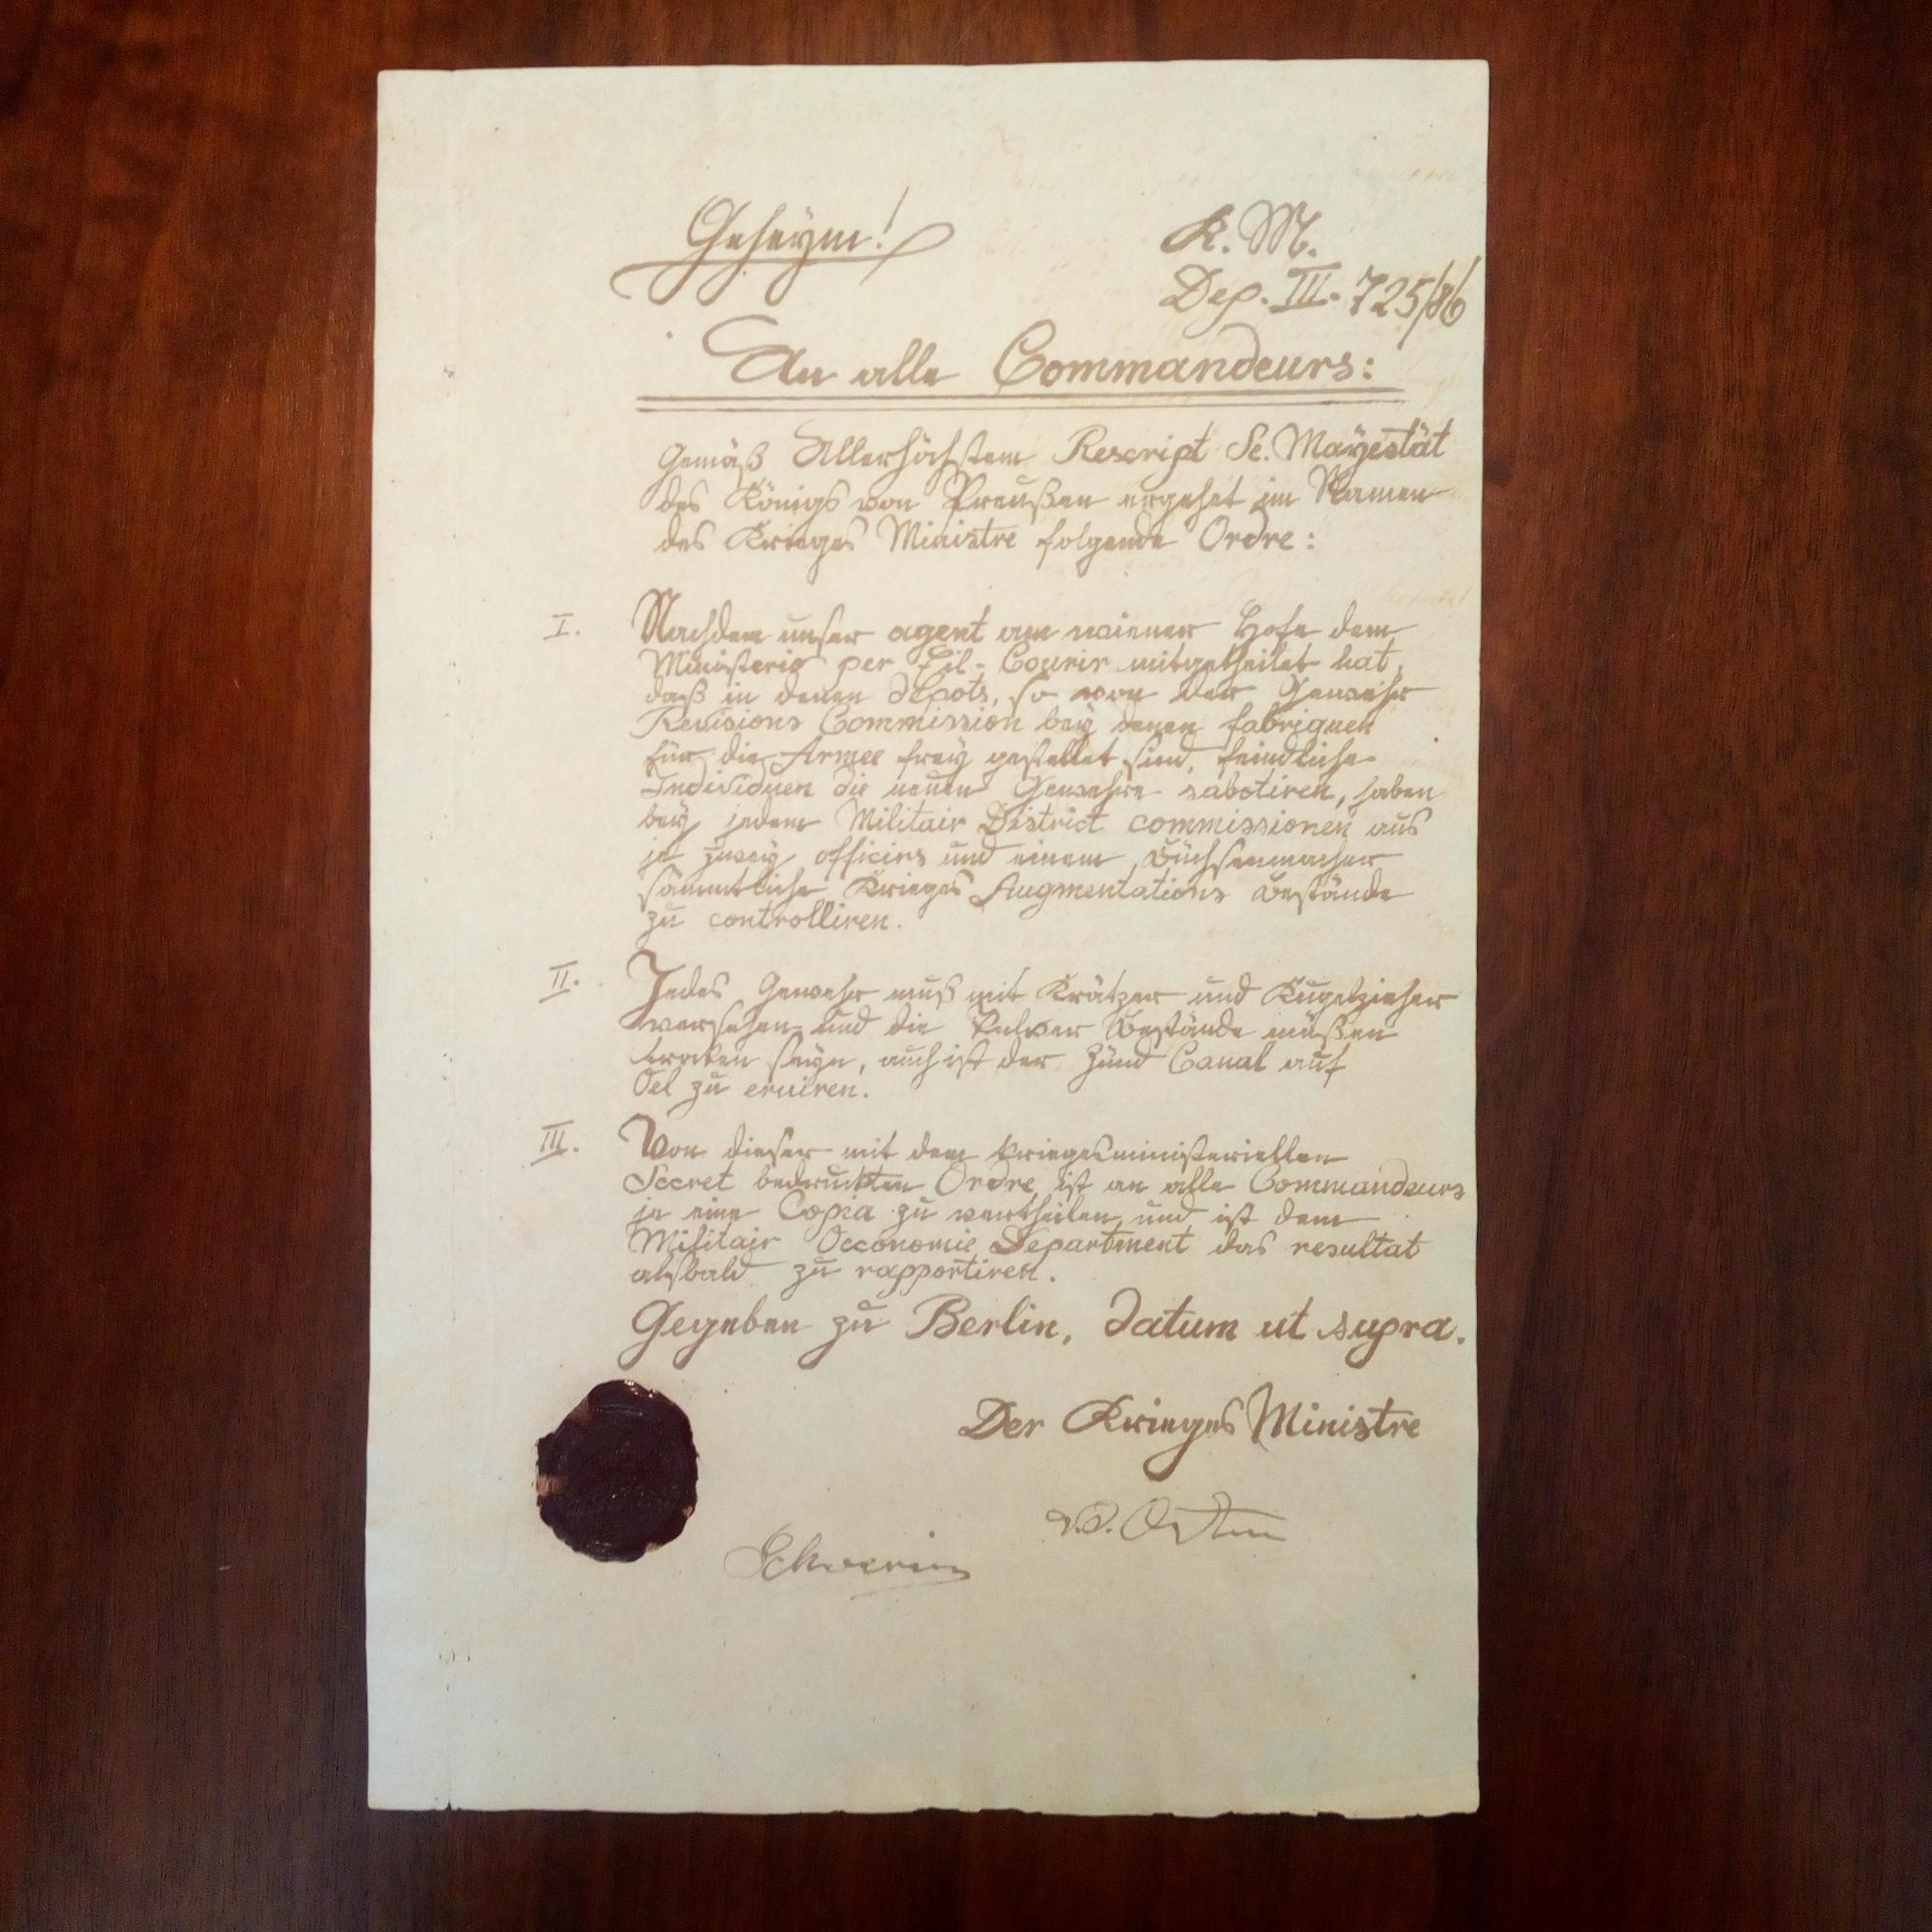 Geheÿm!
K. M.
Dep. III. 725/86
An alle Commandeurs:
Gemäß Allerhöchstem Rescript Se. Mayestät
des Königs von Preußen ergehet im Namen
des Krieges Ministre folgende Ordre:
I. Nachdem unser agent am wiener Hofe dem
Ministerio per Eil-Courir mitgetheilet hat,
daß in denen depots, so von der Gewehr
Revisions Commission beÿ denen fabriquen
für die Armee freÿ gestellet sind, feindliche
Individuen die neuen Gewehre sabotiren, haben
beÿ jedem Militair District commissionen aus
je zweÿ officirs und einem Büchsenmacher
sämmtliche Krieges Augmentations Bestände
zu controlliren.
II. Jedes Gewehr muß mit Krätzer und Kugelzieher
versehen und die Pulver Bestände müßen
troken seÿn, auch ist der Zünd Canal auf
Oel zu eruiren.
III. Von dieser mit dem kriegesministeriellen
Secret bedruckten Ordre ist an alle Commandeurs
je eine Copia zu vertheilen und ist dem
Militair Oeconomie Department das resultat
alsbald zu rapportiren.
Gegeben zu Berlin, datum ut supra.
Der Krieges Ministre
Schwerin